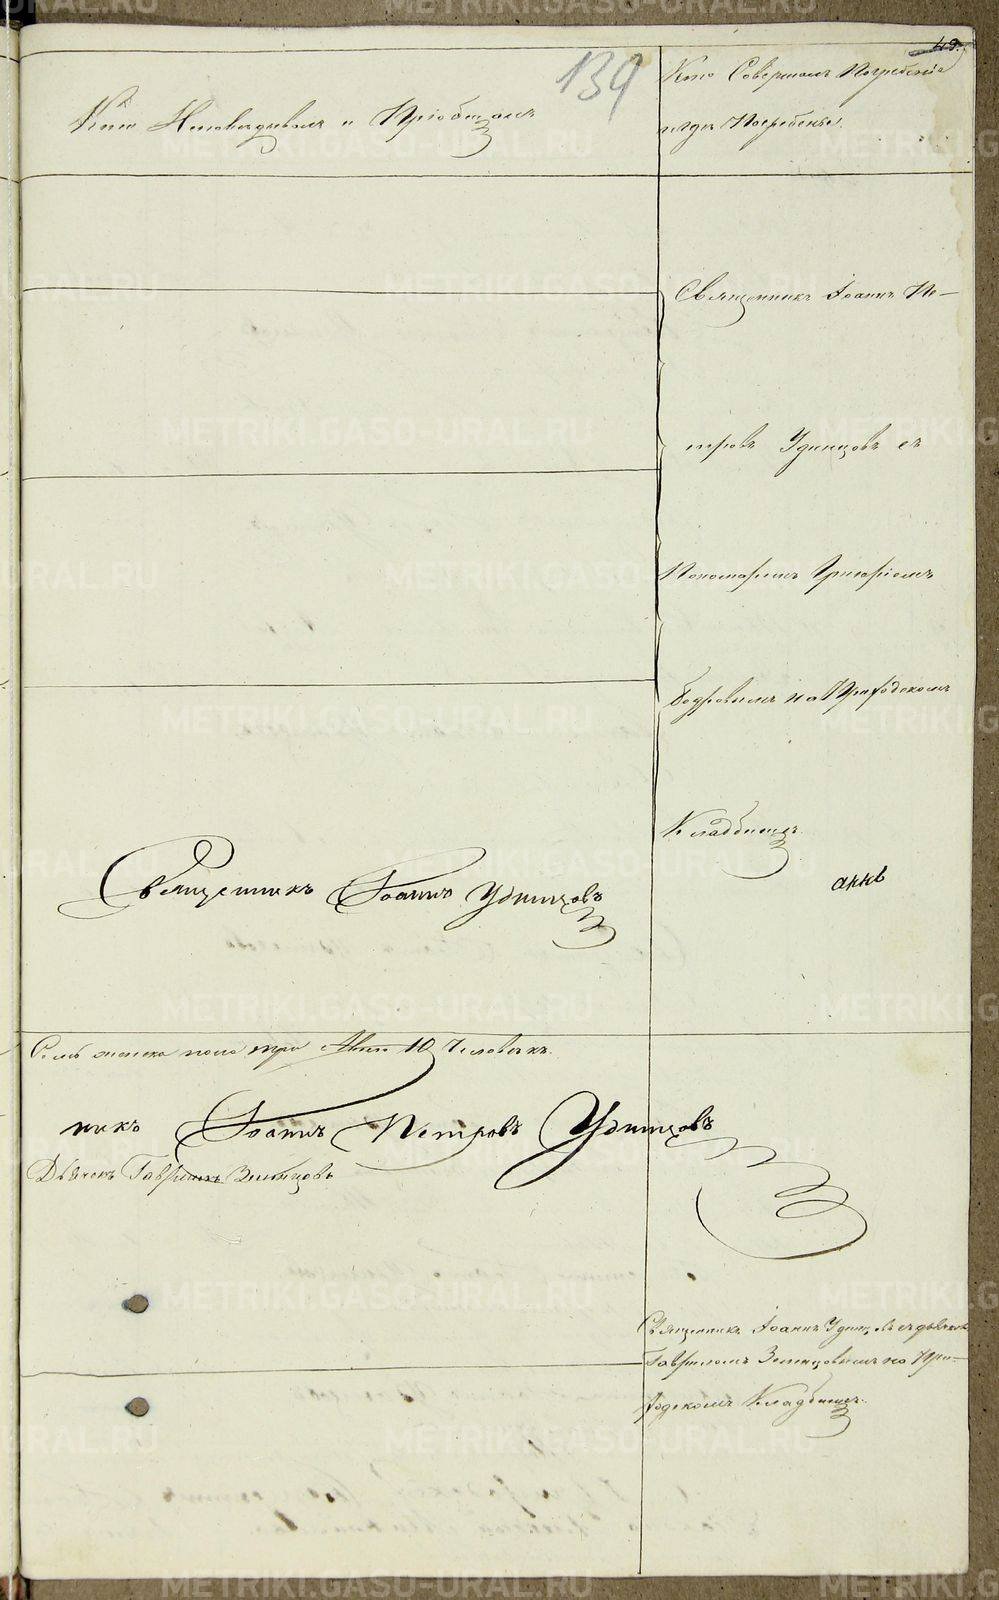 49.
139
Кто Исповедывалъ и Пріобщалъ
Кто Совершалъ Погребеніе
и гдѣ Погребены.
Священникъ Іоаннъ Пе-
тровъ Удинцовъ съ
Пономаремъ Григоріемъ
Бодровымъ на Приходскомъ
Кладбищѣ.
Священникъ Іоаннъ Удинцовъ
женска пола три 10 Человѣкъ.
никъ Іоаннъ Петровъ Удинцовъ
Дьячекъ Гавріилъ Зыпцовъ
Священникъ Іоаннъ Удинцовъ съ дьячкомъ
Гавріиломъ на При-
ходскомъ Кладбищѣ.
METRIKI.GASO-URAL.RU